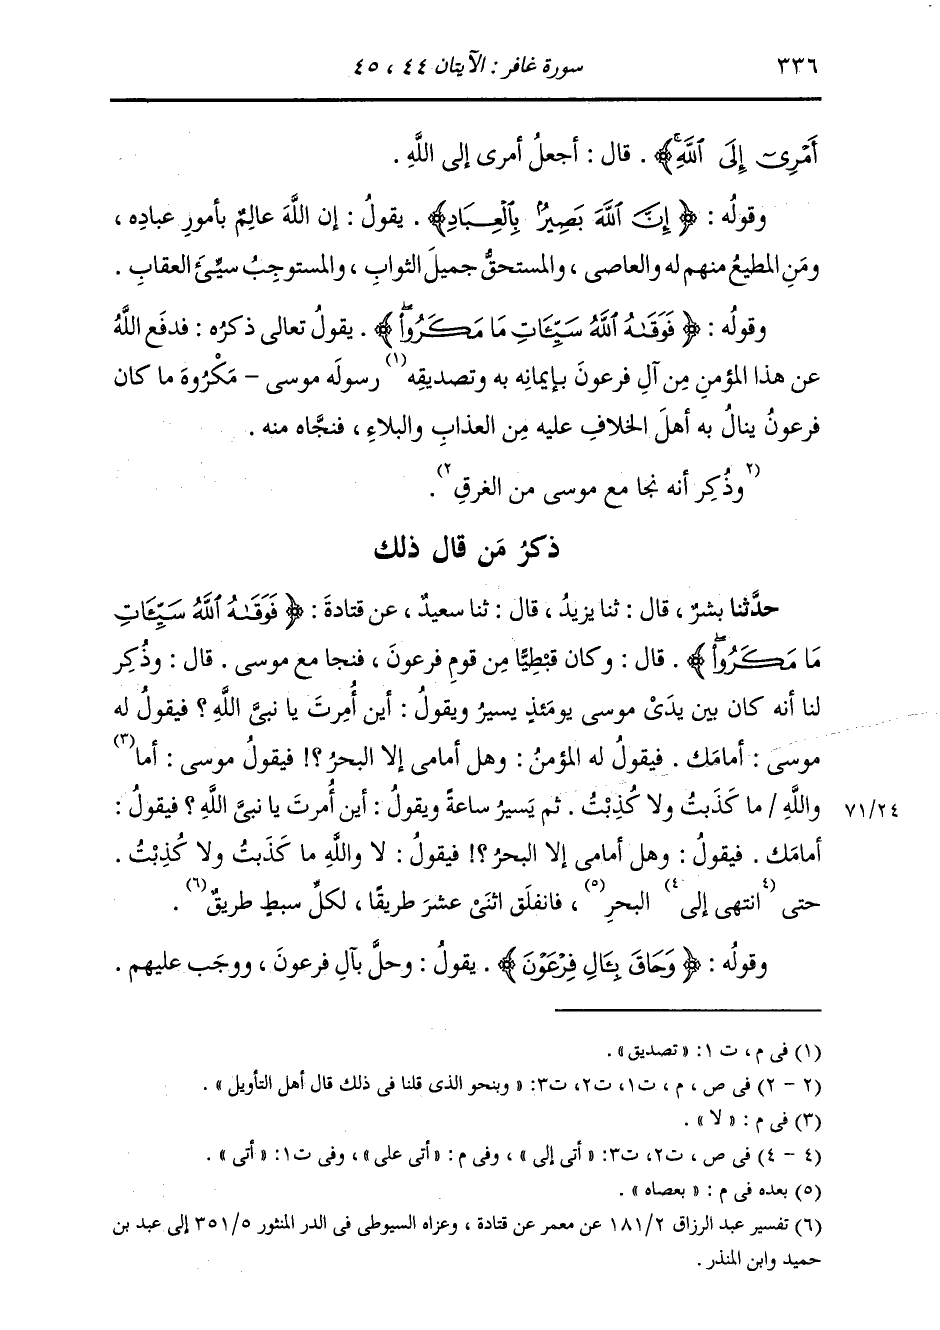 ٣٣٦ سورة غافر : الآيتان ٤٤ ، ٤٥
أَمْرِىٓ إِلَى ٱللَّهِۚ﴾ . قال : أجعلُ أمرى إلى اللَّهِ .
وقولُه : ﴿ إِنَّ ٱللَّهَ بَصِيرٌۢ بِٱلْعِبَادِ﴾ . يقولُ : إن اللَّهَ عالِمٌ بأمورِ عبادِه ،
ومَنِ المطيعُ منهم له والعاصى ، والمستحقُّ جميلَ الثوابِ ، والمستوجِبُ سيِّئَ العقابِ .
وقولُه : ﴿ فَوَقَىٰهُ ٱللَّهُ سَيِّـَٔاتِ مَا مَكَرُوا۟ۖ ﴾ . يقولُ تعالى ذكرُه : فدفَع اللَّهُ
عن هذا المؤمنِ مِن آلِ فرعونَ بإيمانِه به وتصديقِه(١) رسولَه موسى – مَكْرُوهَ ما كان
فرعونُ ينالُ به أهلَ الخلافِ عليه مِن العذابِ والبلاءِ ، فنجَّاه منه .
(٢وذُكِر أنه نجا مع موسى من الغرقِ٢) .
ذكرُ مَن قال ذلك
حدَّثنا بشرٌ ، قال : ثنا يزيدُ ، قال : ثنا سعيدٌ ، عن قتادةَ : ﴿ فَوَقَىٰهُ ٱللَّهُ سَيِّـَٔاتِ
مَا مَكَرُوا۟ۖ ﴾ . قال : وكان قبْطِيًّا مِن قومِ فرعونَ ، فنجا مع موسى . قال : وذُكِر
لنا أنه كان بين يدَىْ موسى يومَئذٍ يسيرُ ويقولُ : أين أُمِرتَ يا نبىَّ اللَّهِ ؟ فيقولُ له
موسى : أمامَك . فيقولُ له المؤمنُ : وهل أمامى إلا البحرُ ؟! فيقولُ موسى : أما(٣)
٧١/٢٤ واللَّهِ / ما كَذَبتُ ولا كُذِبْتُ . ثم يَسيرُ ساعةً ويقولُ : أين أُمرتَ يا نبىَّ اللَّهِ ؟ فيقولُ :
أمامَك . فيقولُ : وهل أمامى إلا البحرُ ؟! فيقولُ : لا واللَّهِ ما كَذَبتُ ولا كُذِبْتُ .
حتى (٤انتهى إلى٤) البحرِ(٥) ، فانفلَق اثنَىْ عشرَ طريقًا ، لكلِّ سبطٍ طريقٌ(٦) .
وقولُه : ﴿ وَحَاقَ بِـَٔالِ فِرْعَوْنَ ﴾ . يقولُ : وحلَّ بآلِ فرعونَ ، ووجَب عليهم .
(١) فى م ، ت ١: « تصديق » .
(٢ – ٢) فى ص ، م ، ت١، ت٢، ت٣: « وبنحو الذى قلنا فى ذلك قال أهل التأويل » .
(٣) فى م : « لا » .
(٤ – ٤) فى ص ، ت٢، ت٣: « أتى إلى » ، وفى م : « أتى على » ، وفى ت١: « أتى » .
(٥) بعده فى م : « بعصاه » .
(٦) تفسير عبد الرزاق ١٨١/٢ عن معمر عن قتادة ، وعزاه السيوطى فى الدر المنثور ٣٥١/٥ إلى عبد بن
حميد وابن المنذر .